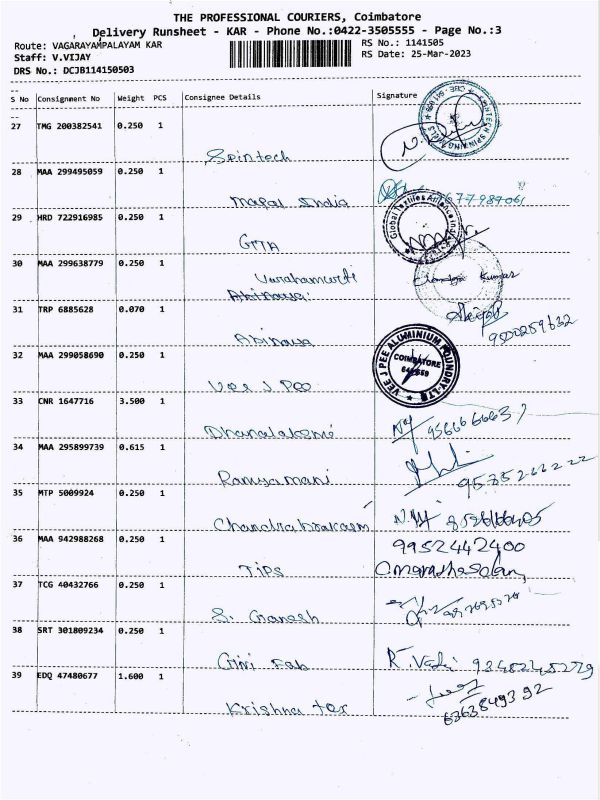 THE PROFESSIONAL COURIERS, Coimbatore
Delivery Runsheet - KAR - Phone No.:0422-3505555 - Page No.:3
Route: VAGARAYAMPALAYAM KAR
RS No.: 1141505
Staff: V.VIJAY
RS Date: 25-Mar-2023
DRS No.: DCJB114150503
S No Consignment No Weight PCS Consignee Details Signature
27 TMG 200382541 0.250 1
Spintech
28 MAA 299495059 0.250 1
India
29 HRD 722916985 0.250 1
GTTA
30 MAA 299638779 0.250 1
Varahamurti
Chandra Kumar
31 TRP 6885628 0.070 1
Abinaya
9500259632
32 MAA 299058690 0.250 1
VEE J PEE ALUMINIUM FOUNDRY-LTD
COIMBATORE
Vee J Pee
33 CNR 1647716 3.500 1
Dhanalakshmi
34 MAA 295899739 0.615 1
Ramyamani
35 MTP 5009924 0.250 1
Chandra
36 MAA 942988268 0.250 1
9952442400
TIPS
37 TCG 40432766 0.250 1
S. Ganesh
38 SRT 301809234 0.250 1
Giri Fab
39 EDQ 47480677 1.600 1
Krishna tex
6363849392